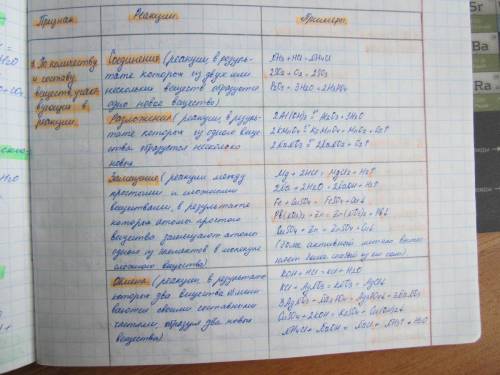 Признак
Реакции
Примеры
По количеству
и составу
веществ, участ-
вующих в
реакции.
Соединения (реакции, в резуль-
тате которых из двух или
нескольких веществ образуется
одно новое вещество)
NH3 + HCl = NH4Cl
P2O5 + 3H2O = 2H3PO4
Разложения (реакции, в резуль-
тате которых из одного веще-
ства образуется несколько
новых
2Al(OH)3 = Al2O3 + 3H2O
2KMnO4 = K2MnO4 + MnO2 + O2↑
Замещения (реакции между
простыми и сложными
веществами, в результате
которых атомы простого
вещества замещают атомы
одного из элементов в молекуле
сложного вещества)
Mg + 2HCl = MgCl2 + H2↑
2Na + 2H2O = 2NaOH + H2↑
Fe + CuSO4 = FeSO4 + Cu↓
Pb(NO3)2 + Zn = Zn(NO3)2 + Pb↓
CuSO4 + Zn = ZnSO4 + Cu↓
(более активный металл вытес-
няет более слабый из его соли)
Обмена (реакции, в результате
которых два вещества обмени-
ваются своими составными
частями, образуя два новых
вещества)
KOH + HCl = KCl + H2O
KCl + AgNO3 = KNO3 + AgCl↓
3AgNO3 + Na3PO4 = Ag3PO4↓ + 3NaNO3
CuSO4 + 2KOH = K2SO4 + Cu(OH)2↓
NH4Cl + NaOH = NaCl + NH3↑ + H2O
Sr
Ba
Ra